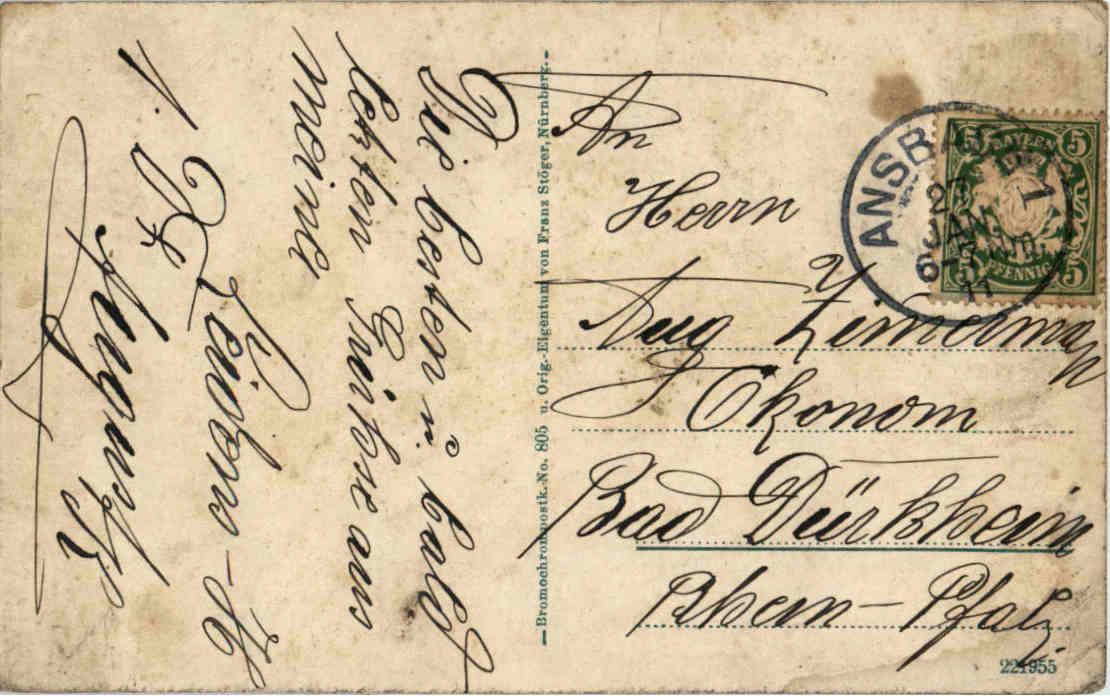 Die besten u. bald
letzten Grüsse aus
meiner
August
Bromochrompostk.-No. 805 u. Orig.-Eigentum von Franz Stöger, Nürnberg.
An
Herrn
Aug Zimmerman
Ökonom
Bad Dürkheim
Rhein-Pfalz.
221955
ANSBACH 1
JAN
6-7 Nm.
11
BAYERN
5 5
PFENNIG
5 5